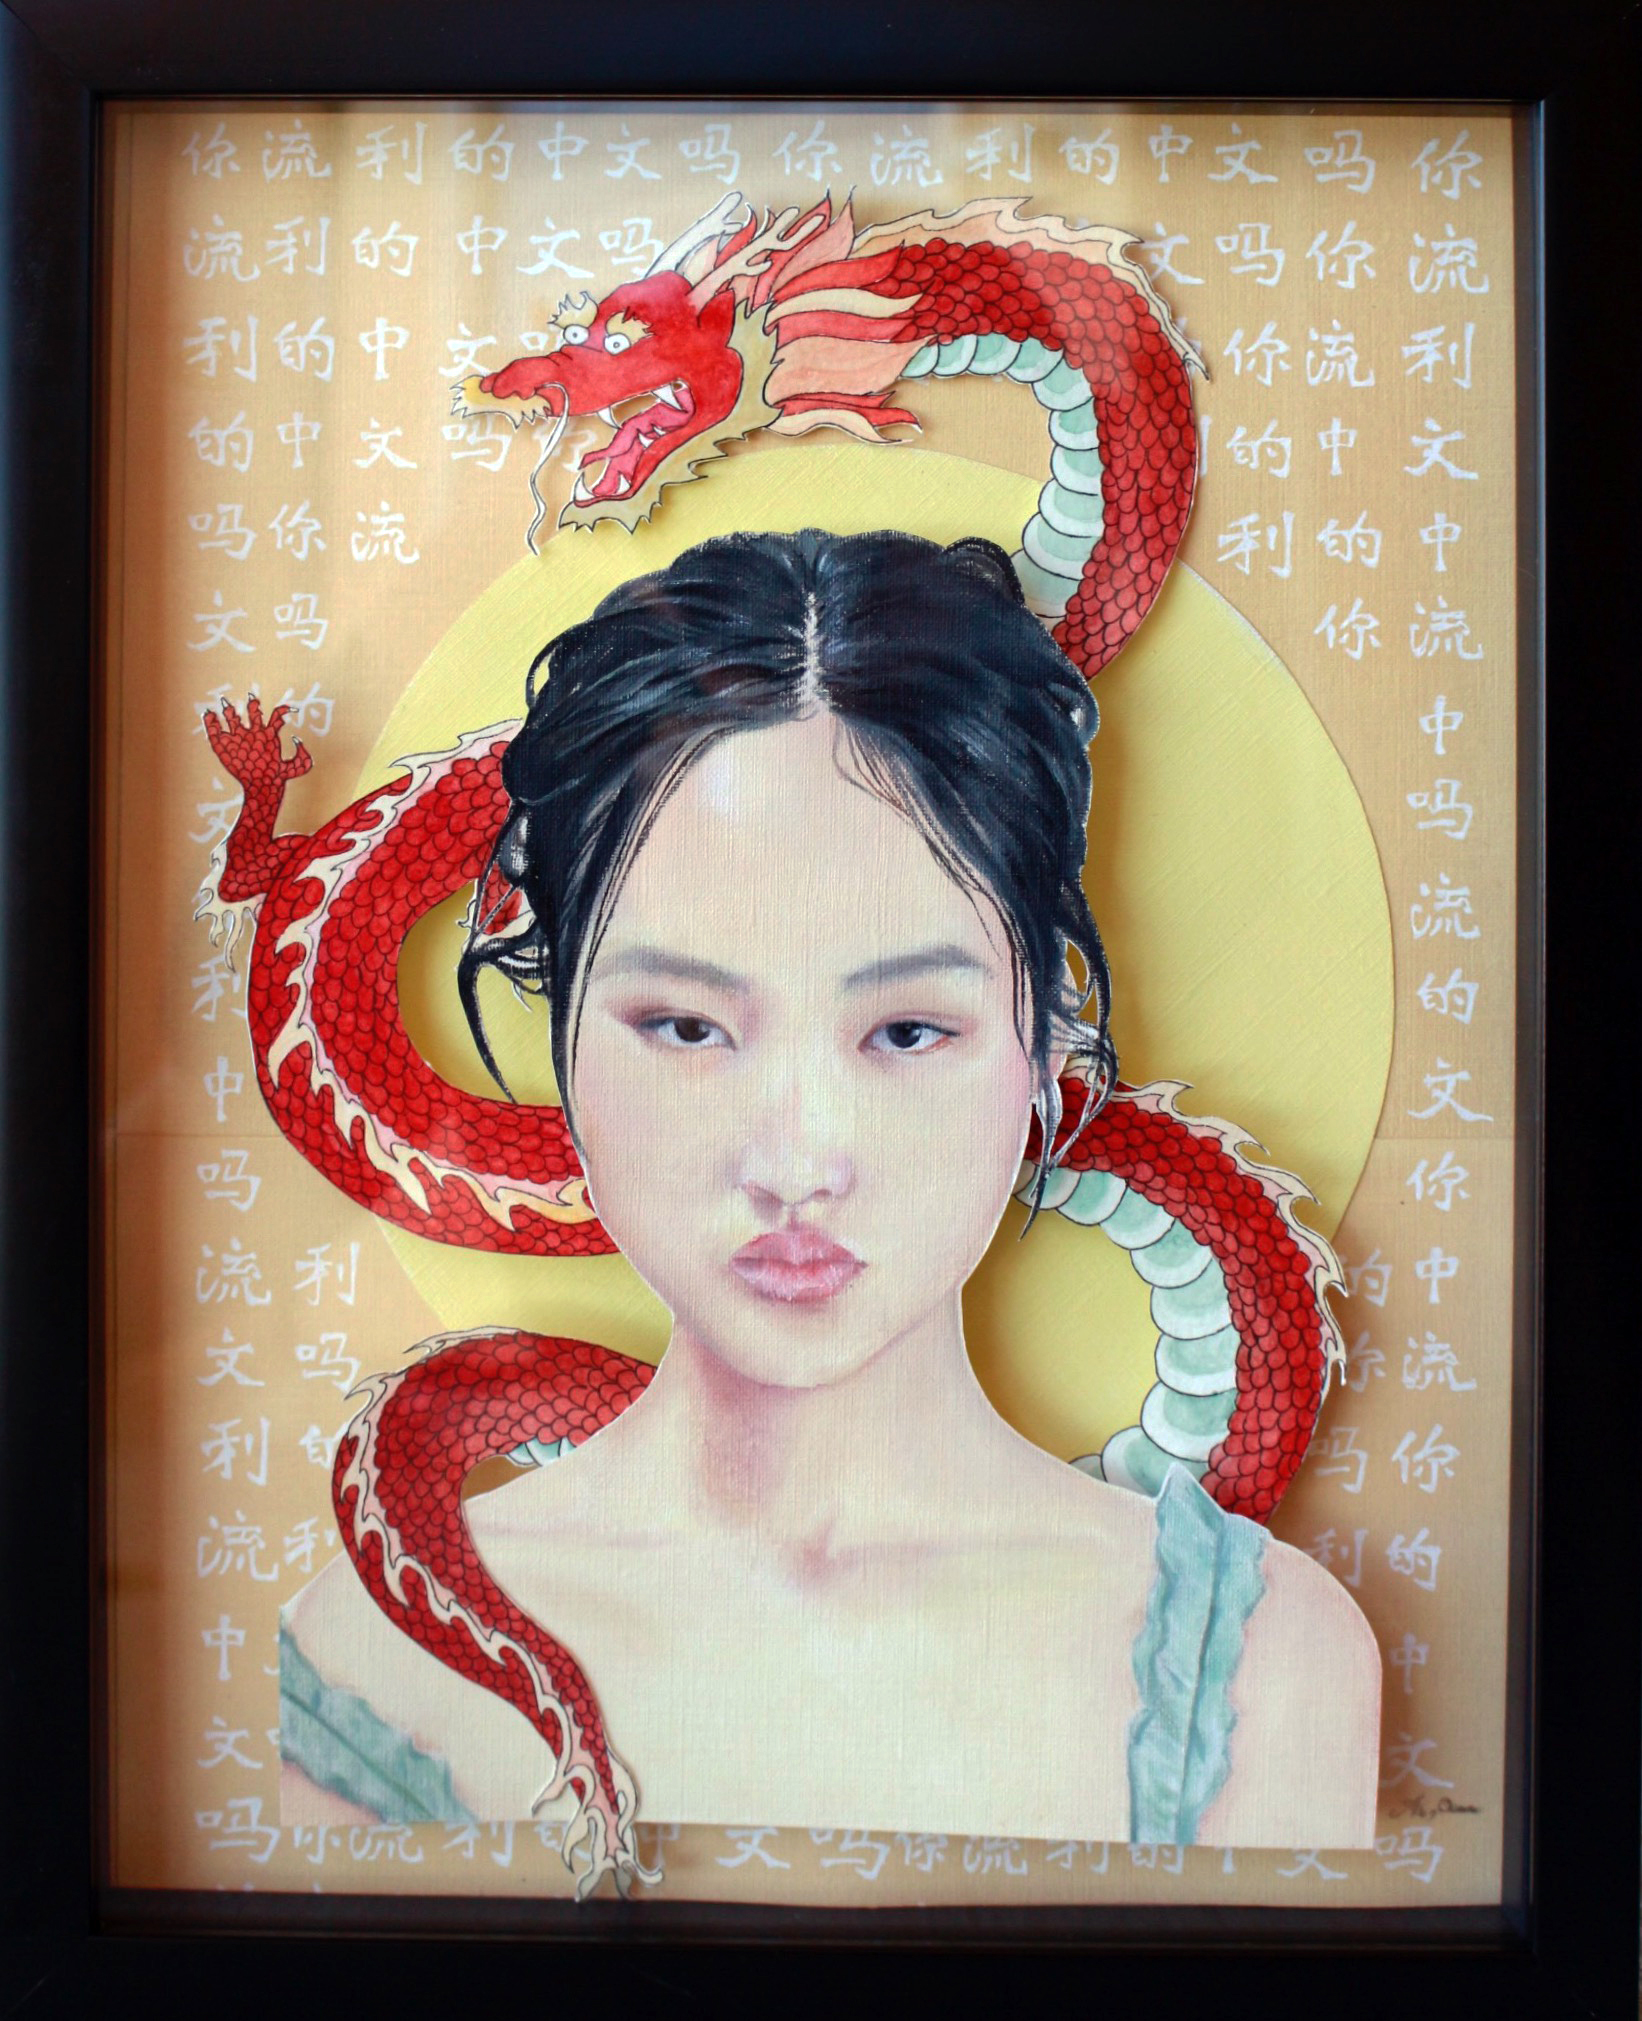 你流利的中文吗你流利的中文吗你
流利的中文吗 文吗你流
利的中文吗 你流利
的中文吗你 的中文
吗你流 利的中
文吗 你流
利的 中
文 吗
流
利 的
中 文
吗 你
流利 的中
文吗 你流
利的 吗你
流利 利的
中 中
文 文
吗你流利的中文吗你流利的中文吗